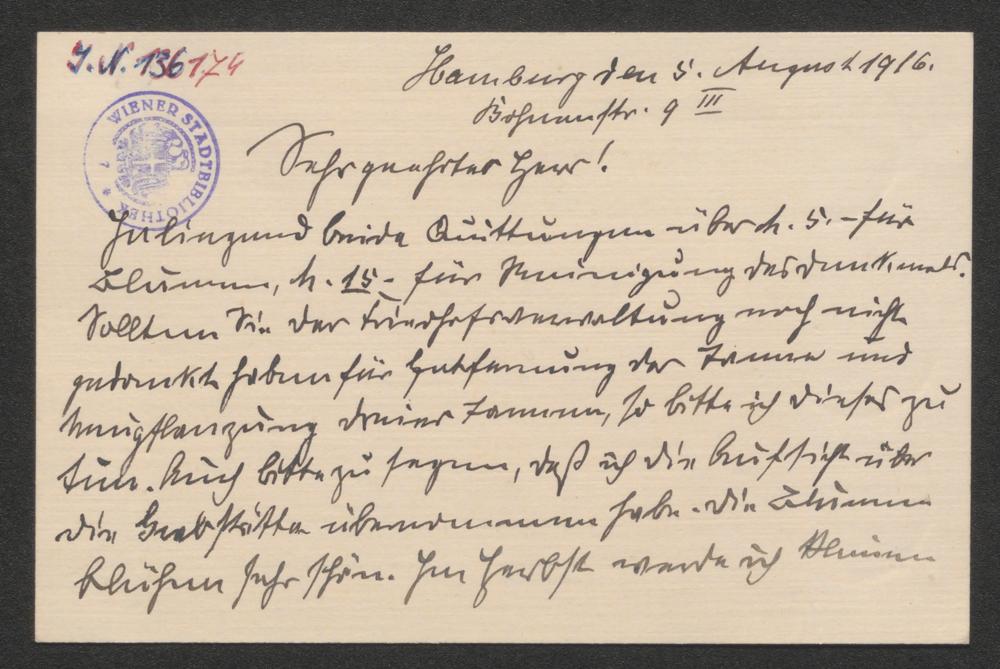 J. N. 136174
WIENER STADTBIBLIOTHEK
Hamburg den 5. August 1916.
9 III
Sehr geehrter Herr!
Inliegend beide Quittungen über M. 5.- für
Blumen, M. 15.- für Reinigung des Denkmals.
Sollten Sie der Friedhofsverwaltung noch nicht
gedankt haben für Entfernung der Tanne und
Neupflanzung dreier Tannen, so bitte ich dieses zu
tun. Auch bitte zu sagen, daß ich die Aufsicht über
die Grabstätte übernommen habe. Die Blumen
blühen sehr schön. Im Herbst werde ich